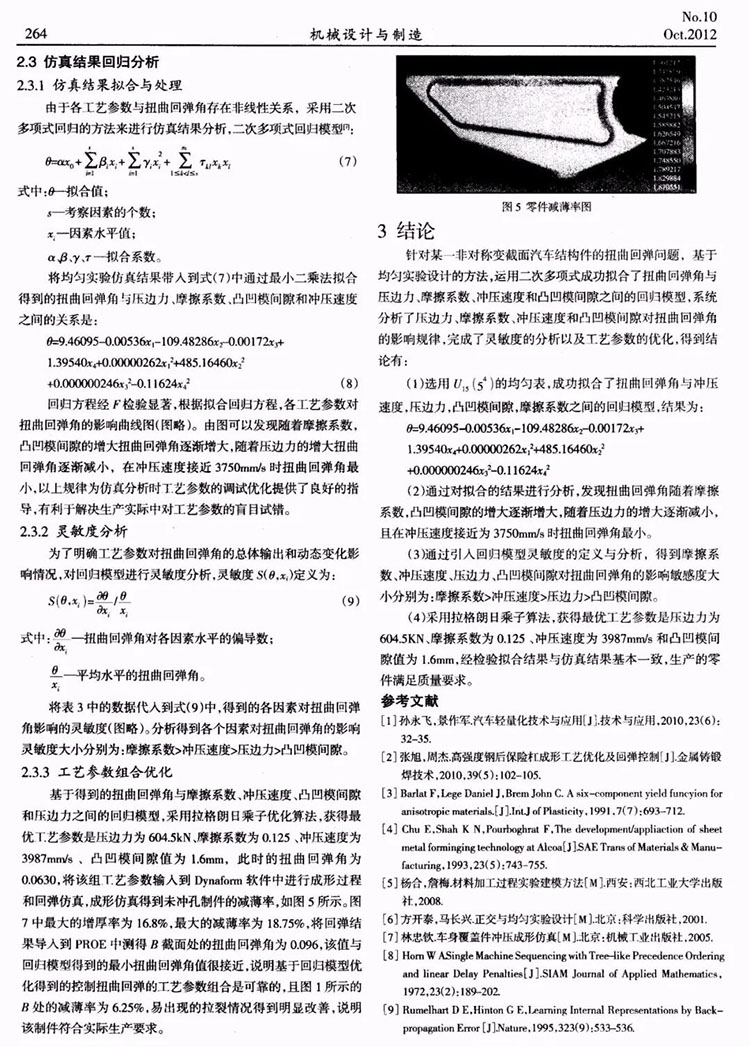 264
机械设计与制造
No.10
Oct.2012
2.3 仿真结果回归分析
2.3.1 仿真结果拟合与处理
由于各工艺参数与扭曲回弹角存在非线性关系，采用二次
多项式回归的方法来进行仿真结果分析,二次多项式回归模型[7]:
θ=αx₀+∑ᵢ₌₁ˢβᵢxᵢ+∑ᵢ₌₁ˢγᵢxᵢ²+∑τₖₗxₖxₗ (7)
式中:θ—拟合值;
s—考察因素的个数;
xᵢ—因素水平值;
α、β、γ、τ—拟合系数。
将均匀实验仿真结果带入到式(7)中通过最小二乘法拟合
得到的扭曲回弹角与压边力、摩擦系数、凸凹模间隙和冲压速度
之间的关系是:
θ=9.46095-0.00536x₁-109.48286x₂-0.00172x₃+
1.39540x₄+0.00000262x₁²+485.16460x₂²
+0.000000246x₃²-0.11624x₄² (8)
回归方程经 F 检验显著,根据拟合回归方程,各工艺参数对
扭曲回弹角的影响曲线图(图略)。由图可以发现随着摩擦系数,
凸凹模间隙的增大扭曲回弹角逐渐增大,随着压边力的增大扭曲
回弹角逐渐减小，在冲压速度接近 3750mm/s 时扭曲回弹角最
小,以上规律为仿真分析时工艺参数的调试优化提供了良好的指
导,有利于解决生产实际中对工艺参数的盲目试错。
2.3.2 灵敏度分析
为了明确工艺参数对扭曲回弹角的总体输出和动态变化影
响情况,对回归模型进行灵敏度分析,灵敏度 S(θ,xᵢ)定义为:
S(θ,xᵢ)=∂θ/∂xᵢ / θ/xᵢ (9)
式中:∂θ/∂xᵢ—扭曲回弹角对各因素水平的偏导数;
θ/xᵢ—平均水平的扭曲回弹角。
将表 3 中的数据代入到式(9)中,得到的各因素对扭曲回弹
角影响的灵敏度(图略)。分析得到各个因素对扭曲回弹角的影响
灵敏度大小分别为:摩擦系数>冲压速度>压边力>凸凹模间隙。
2.3.3 工艺参数组合优化
基于得到的扭曲回弹角与摩擦系数、冲压速度、凸凹模间隙
和压边力之间的回归模型,采用拉格朗日乘子优化算法,获得最
优工艺参数是压边力为 604.5kN、摩擦系数为 0.125 、冲压速度为
3987mm/s 、凸凹模间隙值为 1.6mm，此时的扭曲回弹角为
0.0630,将该组工艺参数输入到 Dynaform 软件中进行成形过程
和回弹仿真,成形仿真得到未冲孔制件的减薄率,如图 5 所示。图
7 中最大的增厚率为 16.8%,最大的减薄率为 18.75%,将回弹结
果导入到 PROE 中测得 B 截面处的扭曲回弹角为 0.096,该值与
回归模型得到的最小扭曲回弹角值很接近,说明基于回归模型优
化得到的控制扭曲回弹的工艺参数组合是可靠的,且图 1 所示的
B 处的减薄率为 6.25%,易出现的拉裂情况得到明显改善,说明
该制件符合实际生产要求。
图 5 零件减薄率图
3 结论
针对某一非对称变截面汽车结构件的扭曲回弹问题，基于
均匀实验设计的方法,运用二次多项式成功拟合了扭曲回弹角与
压边力、摩擦系数、冲压速度和凸凹模间隙之间的回归模型,系统
分析了压边力、摩擦系数、冲压速度和凸凹模间隙对扭曲回弹角
的影响规律,完成了灵敏度的分析以及工艺参数的优化,得到结
论有:
(1)选用 U₁₅(5⁴)的均匀表,成功拟合了扭曲回弹角与冲压
速度,压边力,凸凹模间隙,摩擦系数之间的回归模型,结果为:
θ=9.46095-0.00536x₁-109.48286x₂-0.00172x₃+
1.39540x₄+0.00000262x₁²+485.16460x₂²
+0.000000246x₃²-0.11624x₄²
(2)通过对拟合的结果进行分析,发现扭曲回弹角随着摩擦
系数,凸凹模间隙的增大逐渐增大,随着压边力的增大逐渐减小,
且在冲压速度接近为 3750mm/s 时扭曲回弹角最小。
(3)通过引入回归模型灵敏度的定义与分析，得到摩擦系
数、冲压速度、压边力、凸凹模间隙对扭曲回弹角的影响敏感度大
小分别为:摩擦系数>冲压速度>压边力>凸凹模间隙。
(4)采用拉格朗日乘子算法,获得最优工艺参数是压边力为
604.5KN、摩擦系数为 0.125 、冲压速度为 3987mm/s 和凸凹模间
隙值为 1.6mm,经检验拟合结果与仿真结果基本一致,生产的零
件满足质量要求。
参考文献
[1]孙永飞,景作军.汽车轻量化技术与应用[J].技术与应用,2010,23(6):
32-35.
[2]张旭,周杰.高强度钢后保险杠成形工艺优化及回弹控制[J].金属铸锻
焊技术,2010,39(5):102-105.
[3]Barlat F,Lege Daniel J,Brem John C. A six-component yield funcyion for
anisotropic materials.[J].Int.J of Plasticity,1991,7(7):693-712.
[4]Chu E,Shah K N,Pourboghrat F,The development/appliaction of sheet
metal forminging technology at Alcoa[J].SAE Trans of Materials & Manu-
facturing,1993,23(5):743-755.
[5]杨合,詹梅.材料加工过程实验建模方法[M].西安:西北工业大学出版
社,2008.
[6]方开泰,马长兴.正交与均匀实验设计[M].北京:科学出版社,2001.
[7]林忠钦.车身覆盖件冲压成形仿真[M].北京:机械工业出版社,2005.
[8]Horn W ASingle Machine Sequencing with Tree-like Precedence Ordering
and linear Delay Penalties[J].SIAM Journal of Applied Mathematics,
1972,23(2):189-202.
[9]Rumelhart D E,Hinton G E,Learning Internal Representations by Back-
propagation Error[J].Nature,1995,323(9):533-536.